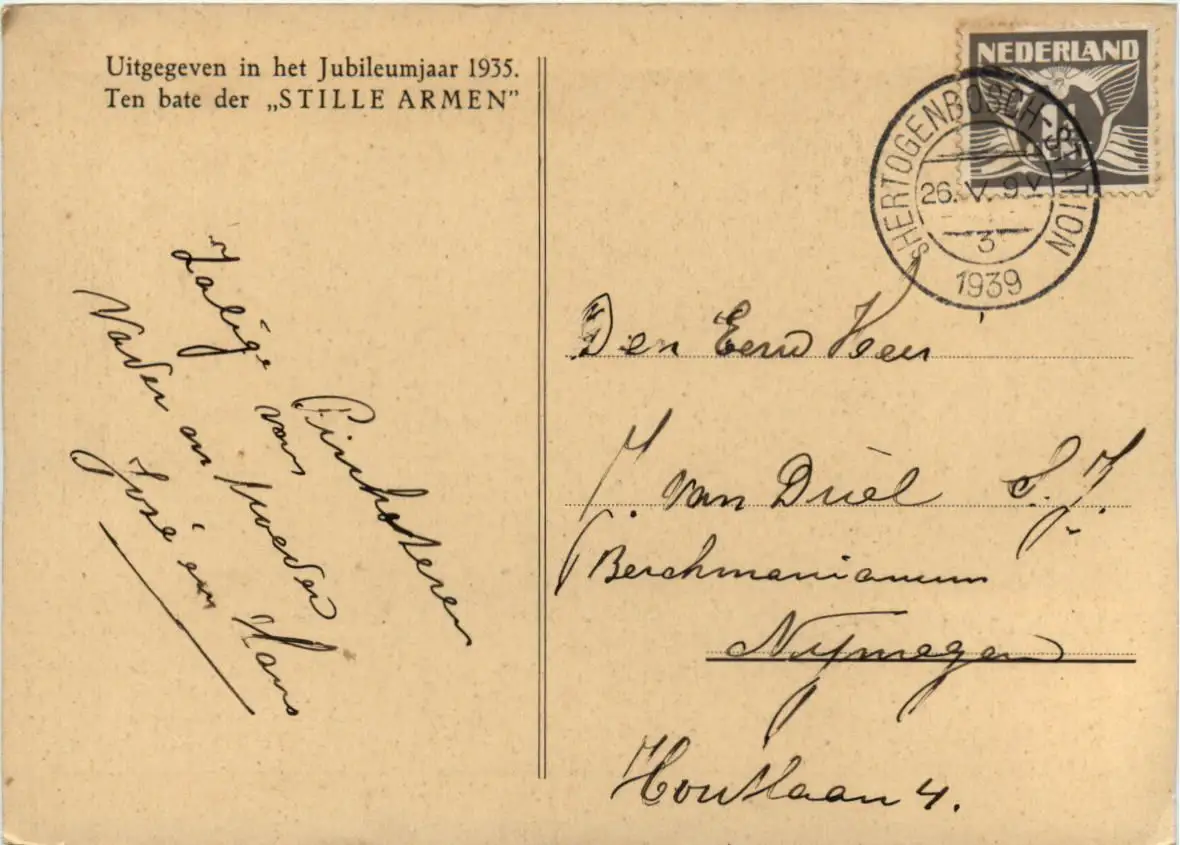 Uitgegeven in het Jubileumjaar 1935.
Ten bate der „STILLE ARMEN”
NEDERLAND
1½
SHERTOGENBOSCH-STATION
26.V. 9V
3
1939
Zalige Pinksteren
van
Vader en Moeder
José en Hans
Den Eerw Heer
J. van Driel S.J.
Berchmanianum
Nijmegen
Houtlaan 4.